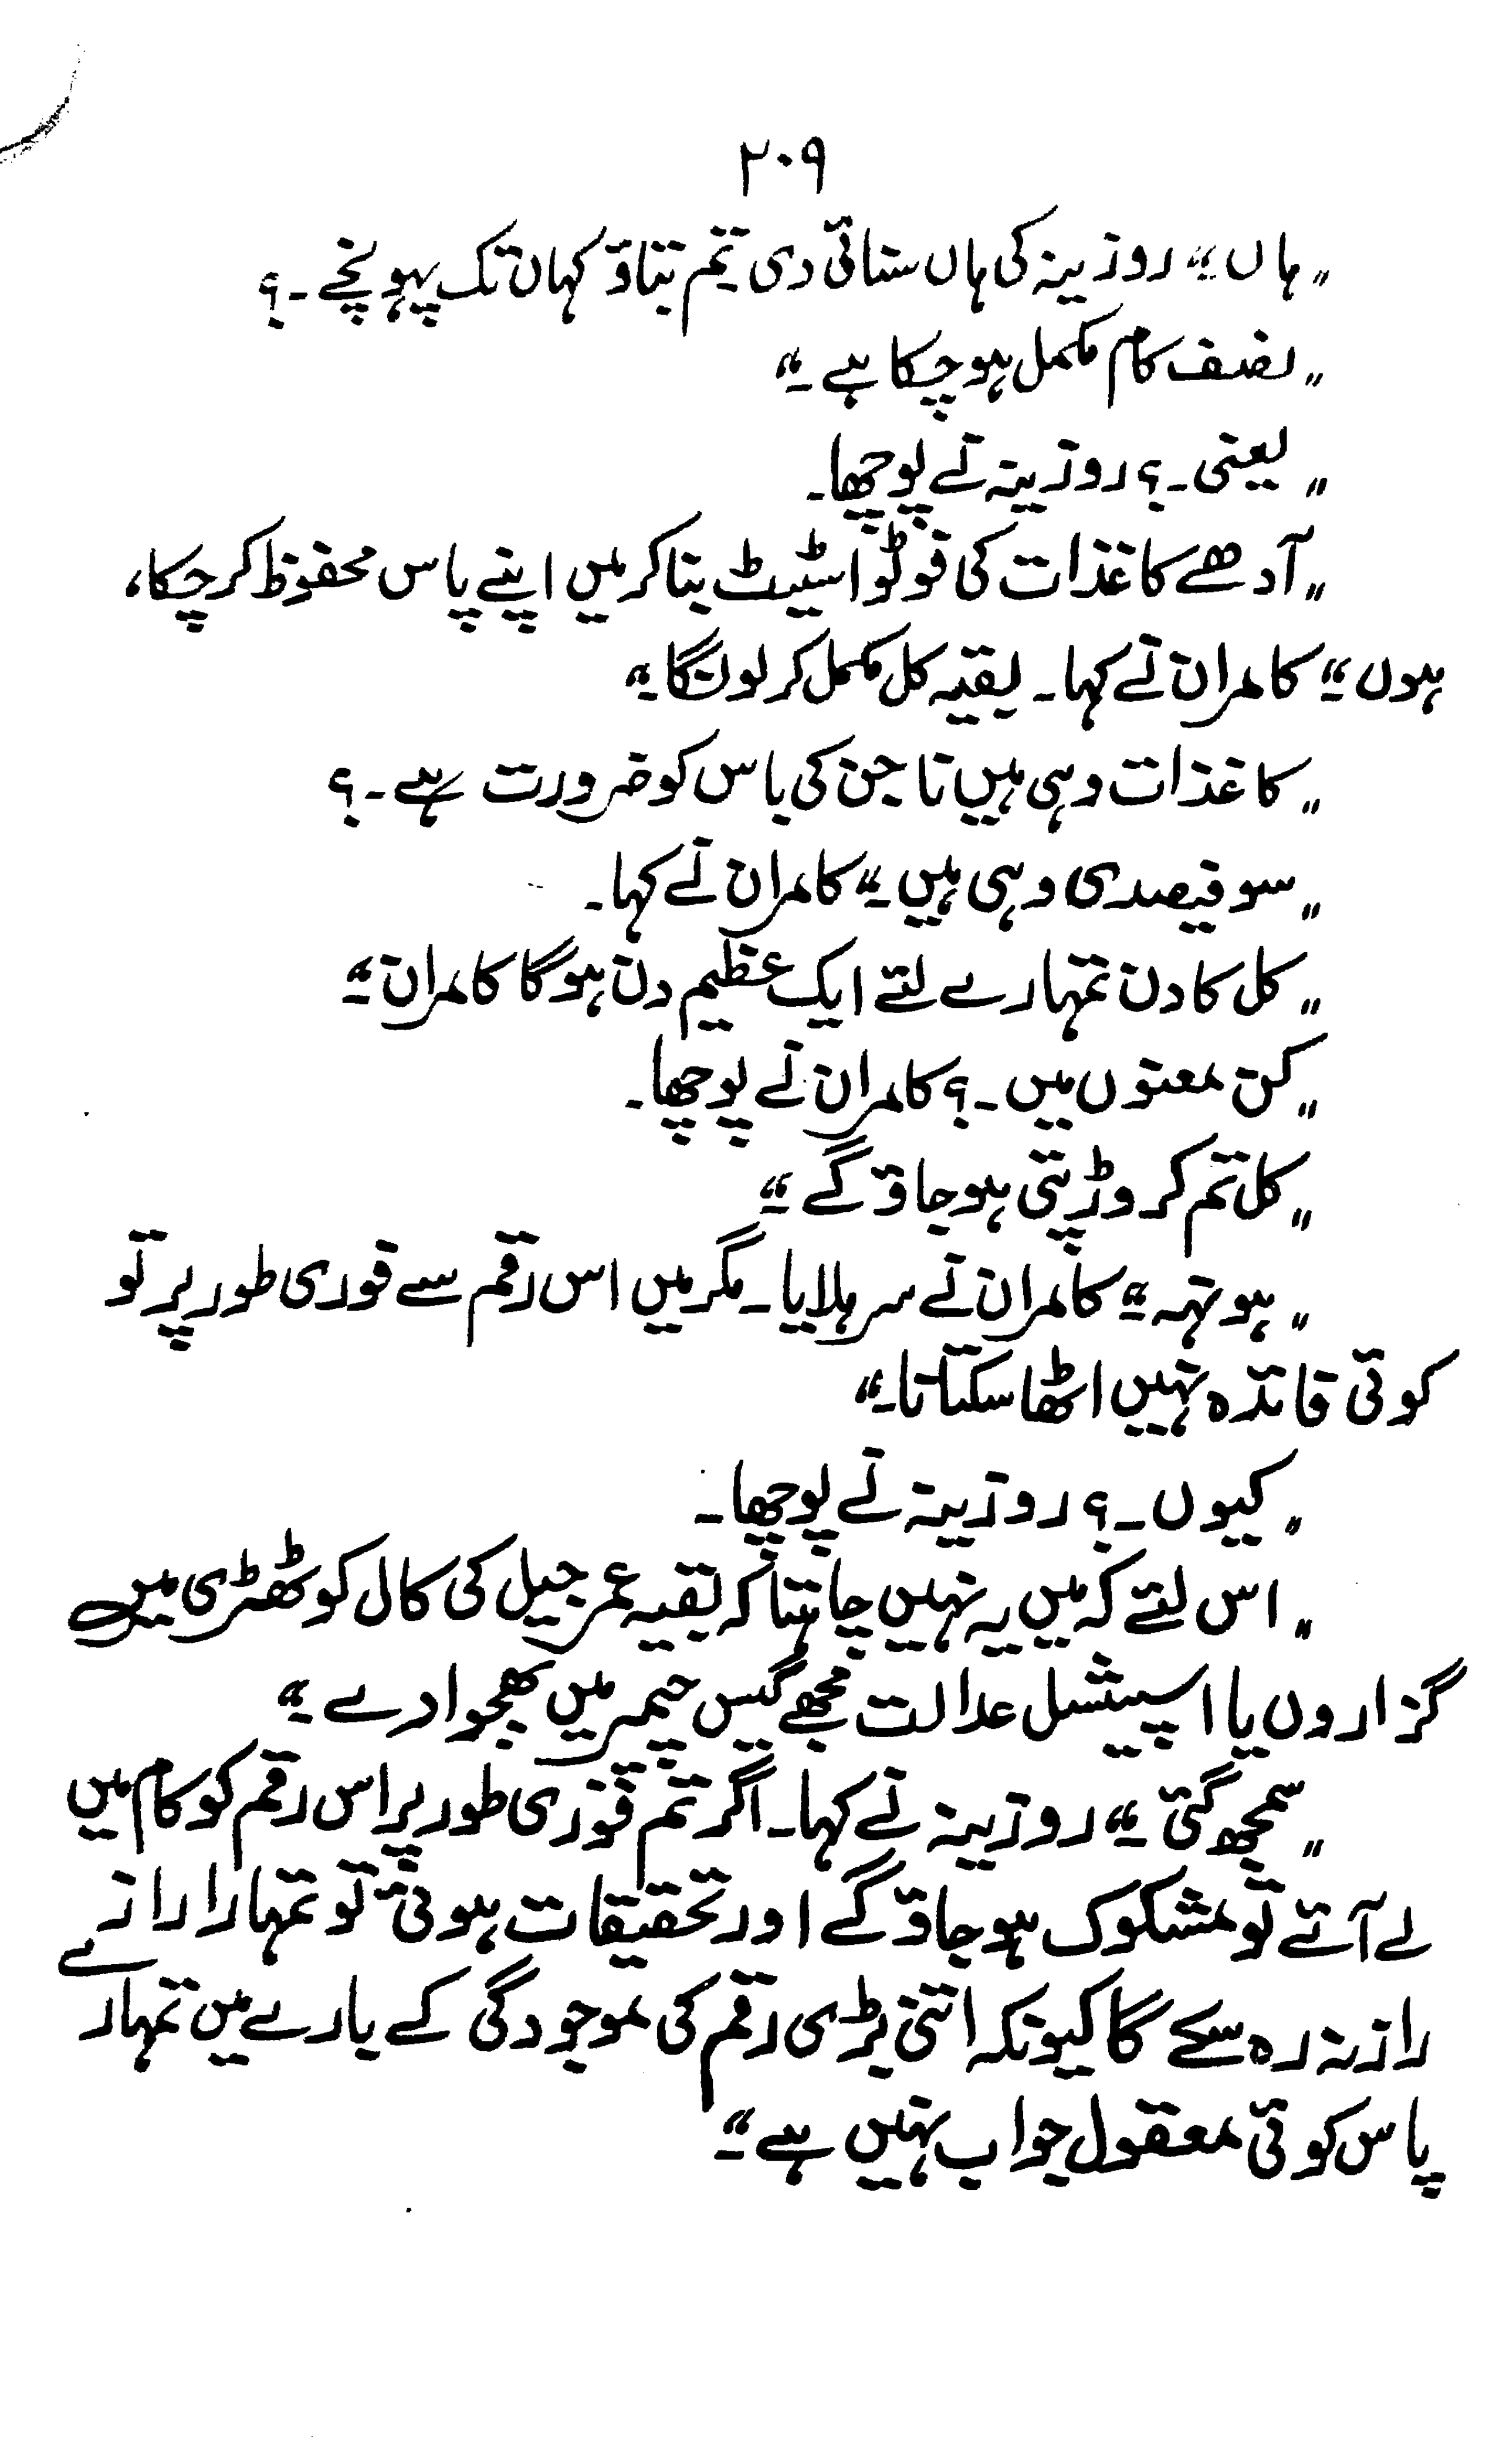 ۲۰۹
"ہاں"۔ روزینہ کی ہاں سنائی دی تم بتاؤ کہاں تک پہونچے۔؟
"نصف کام مکمل ہوچکا ہے۔"
"یعنی۔؟ روزینہ نے پوچھا۔
"آدھے کاغذات کی فوٹو اسٹیٹ بناکر میں اپنے پاس محفوظ کرچکا،
ہوں"۔ کامران نے کہا۔ بقیہ کل مکمل کرلونگا۔"
"کاغذات وہی ہیں نا جن کی باس کو ضرورت ہے۔؟
"سوفیصدی وہی ہیں۔" کامران نے کہا۔
"کل کا دن تمہارے لئے ایک عظیم دن ہوگا کامران۔"
"کن معنوں میں۔؟ کامران نے پوچھا۔
"کل تم کروڑپتی ہوجاؤ گے۔"
"ہونہہ"۔ کامران نے سر ہلایا۔ مگر میں اس رقم سے فوری طور پر تو
کوئی فائدہ نہیں اٹھا سکتا نا۔"
"کیوں۔؟ روزینہ نے پوچھا۔
"اس لئے کہ میں یہ نہیں چاہتا کہ بقیہ عمر جیل کی کال کوٹھڑی میں
گزاروں یا اسپیشل عدالت مجھے گیس چیمبر میں بھجوادے۔"
"سمجھ گئی۔" روزینہ نے کہا۔ اگر تم فوری طور پر اس رقم کو کام میں
لے آئے تو مشکوک ہوجاؤ گے اور تحقیقات ہوئی تو تمہارا راز
راز نہ رہ سکے گا کیونکہ اتنی بڑی رقم کی موجودگی کے بارے میں تمہارے
پاس کوئی معقول جواب نہیں ہے۔"